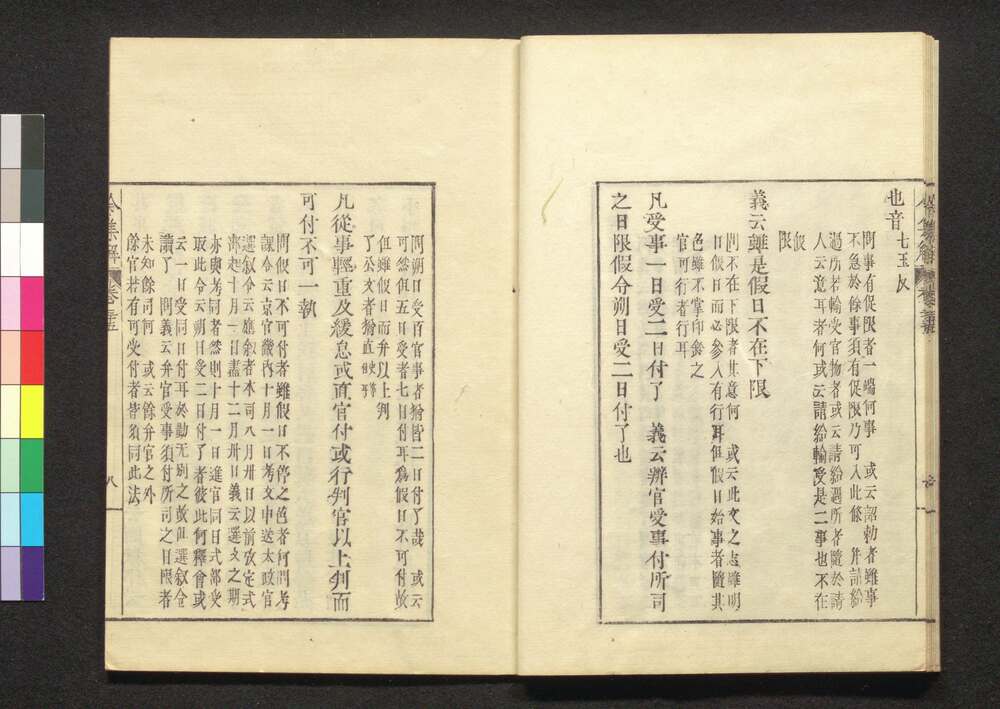 也音 七玉反
問事有促限者一端何事 或云詔勅者雖事
不急於餘事須有促限乃可入此條 并請給
過所若輸受官物者或云請給過所者隨於請
人云意耳者何或云請給輸受是二事也不在
限
義云雖是假日不在下限
問不在下限者其意何 或云此文之志雖明
日假日而必參入有行耳但假日始事者隨其
色雖不掌印餘之
官可行者行耳
凡受事一日受二日付了 義云辨官受事付所司
之日限假令朔日受二日付了也
問朔日受百官事者猶皆二日付了哉 或云
可然但五日受者七日付耳為假日不可付故
但雖假日而弁以上判
了公文者猶直
凡從事輕重及緩急或直官付或行判官以上判而
可付不可一執
問假日不可付者雖假日不停之色者何問考
課令云京官畿內十月一日考文申送太政官
選叙令云應叙者本司八月卅日以前校定式
部起十月一日盡十二月卅日義云選文之期
亦與考同者然則十月一日進官同日式部受
取此令云朔日受二日付了者彼此何釋會或
云一日受同日付耳於勘无別之故但選叙令
讀了 問義云弁官受事須付所司之日限者
未知餘司何 或云餘弁官之外
餘官若有可受付者皆須同此法
令集解 卷三十五
八